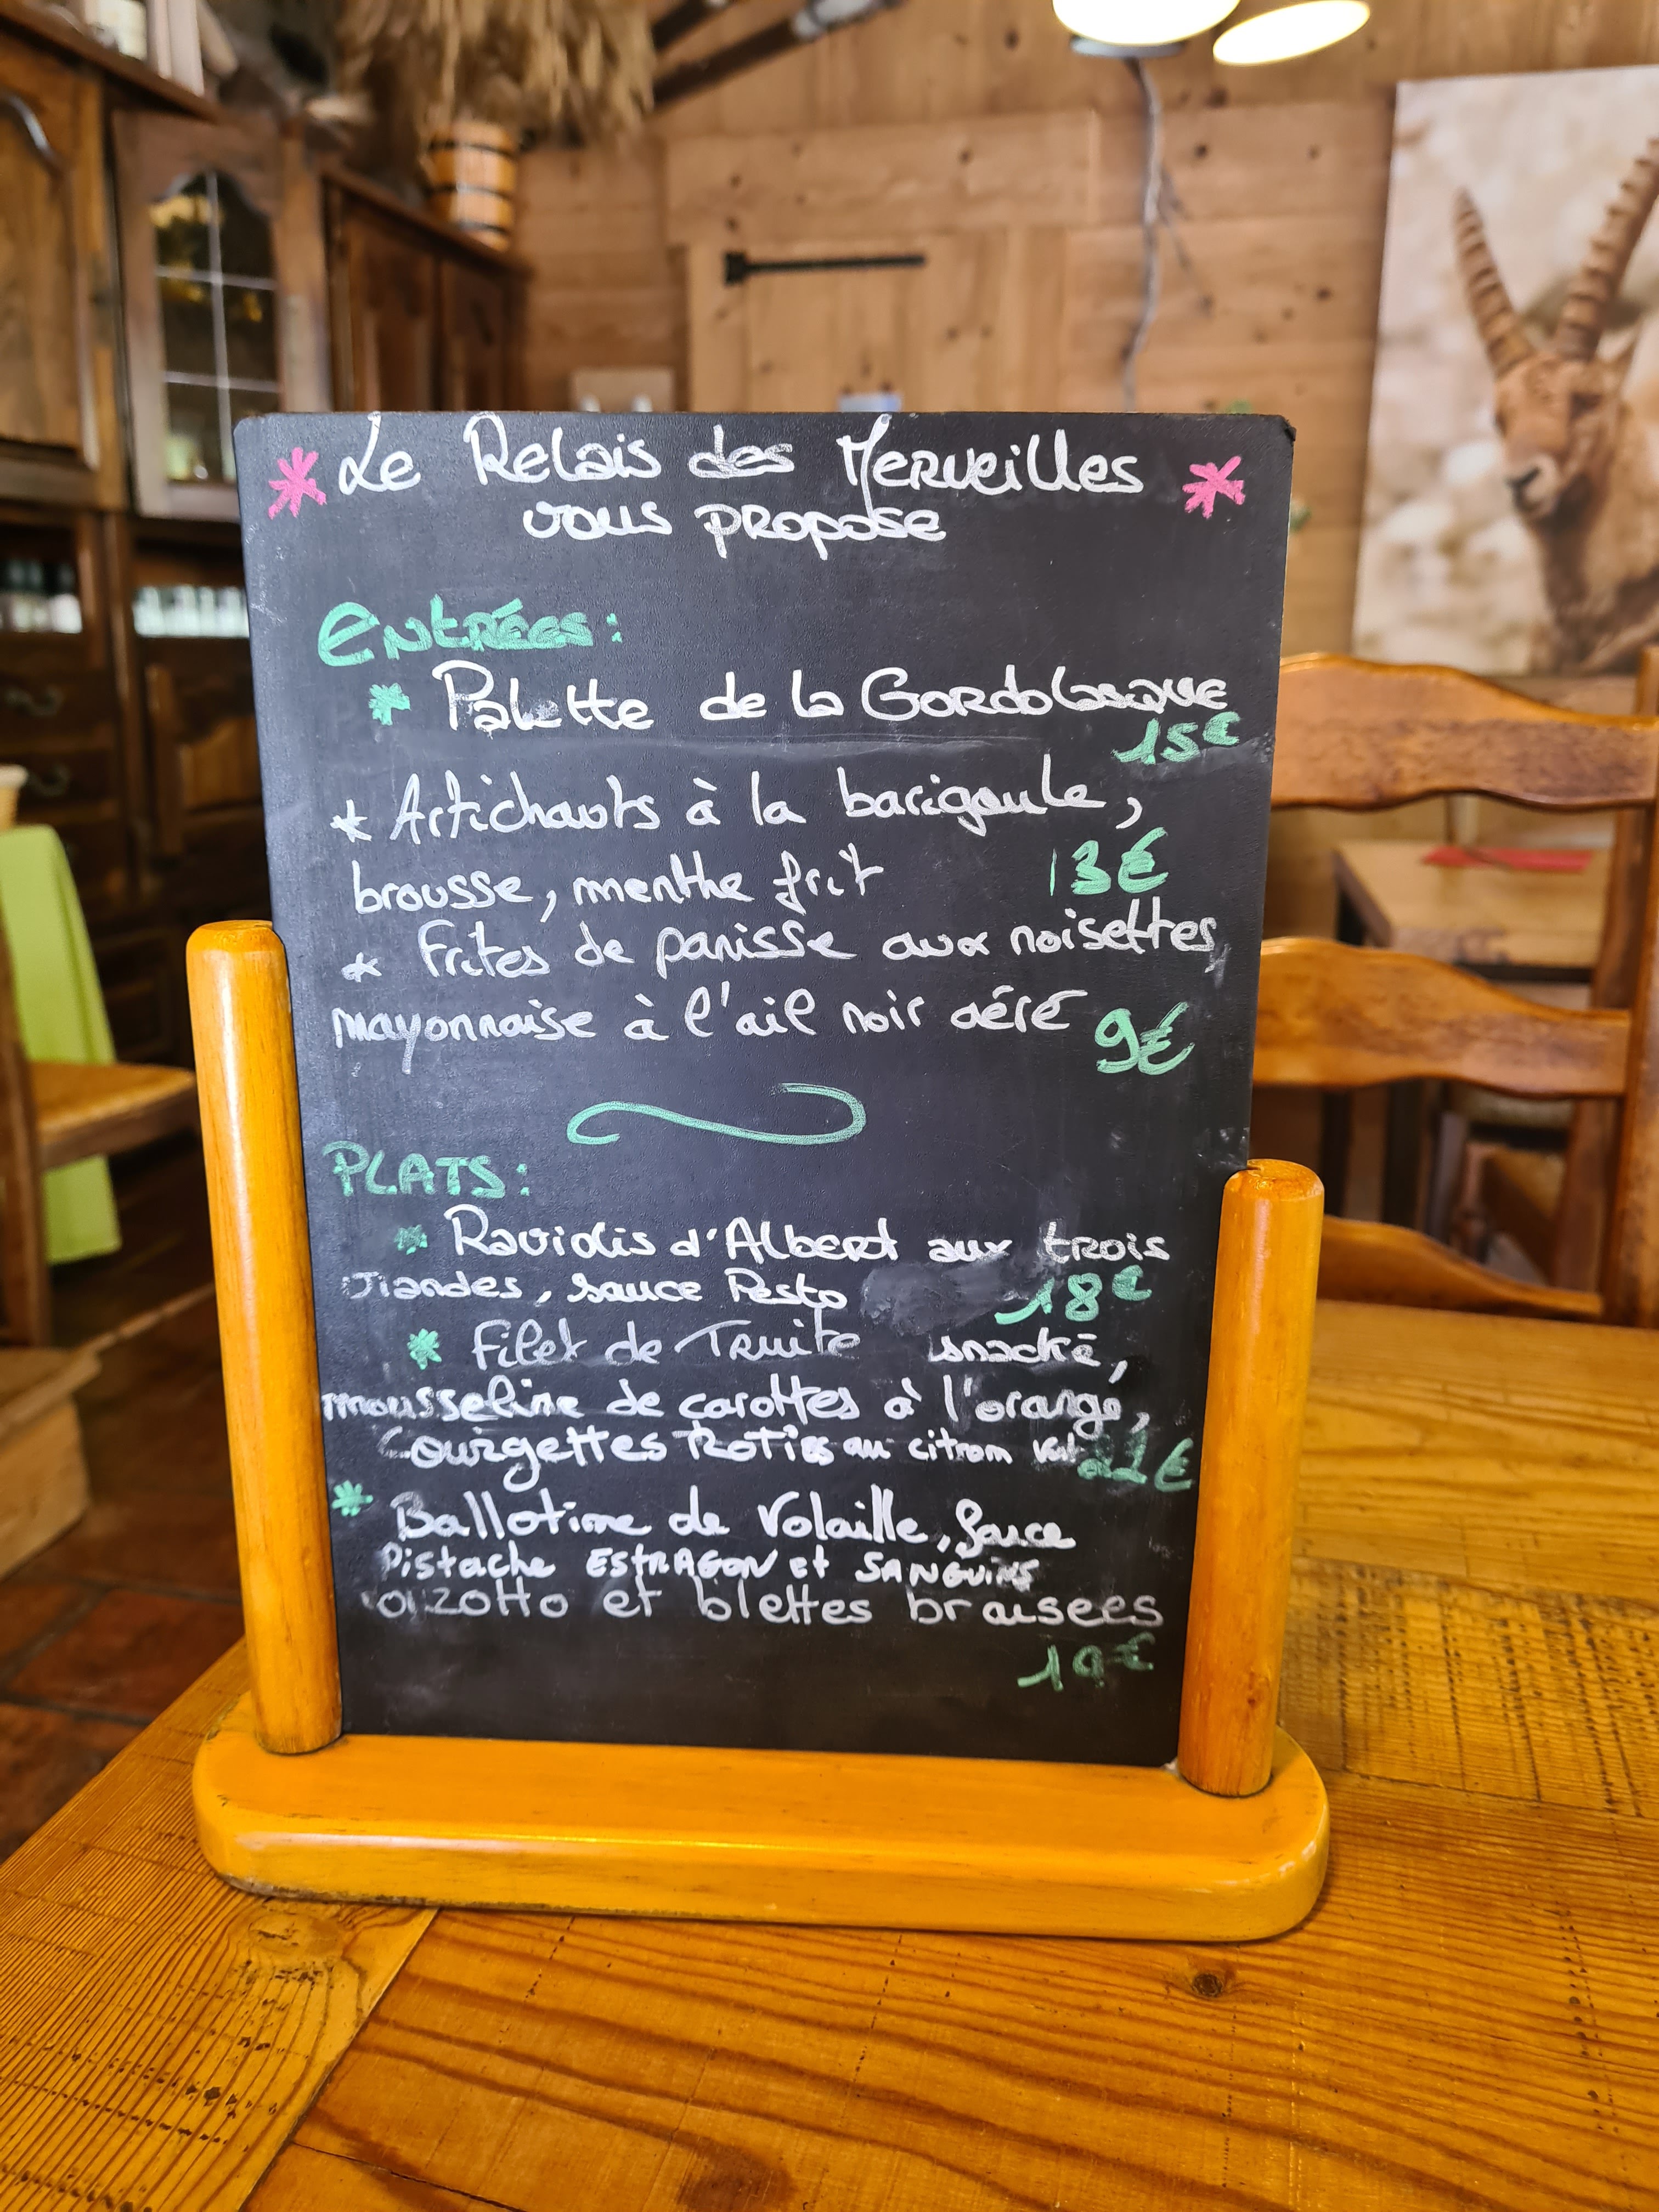 Le Relais des Merveilles
vous propose
Entrées :
* Palette de la Gordolasque
15€
* Artichauts à la barigoule,
brousse, menthe frit 13€
* Frites de panisse aux noisettes,
mayonnaise à l'ail noir aéré 9€
PLATS :
* Raviolis d'Albert aux trois
viandes, sauce Pesto 18€
* Filet de Truite snacké,
mousseline de carottes à l'orange,
Courgettes Roties au citron
* Ballotine de Volaille, Sauce
Pistache ESTRAGON et SANGUINS
orzotto et blettes braisees
19€